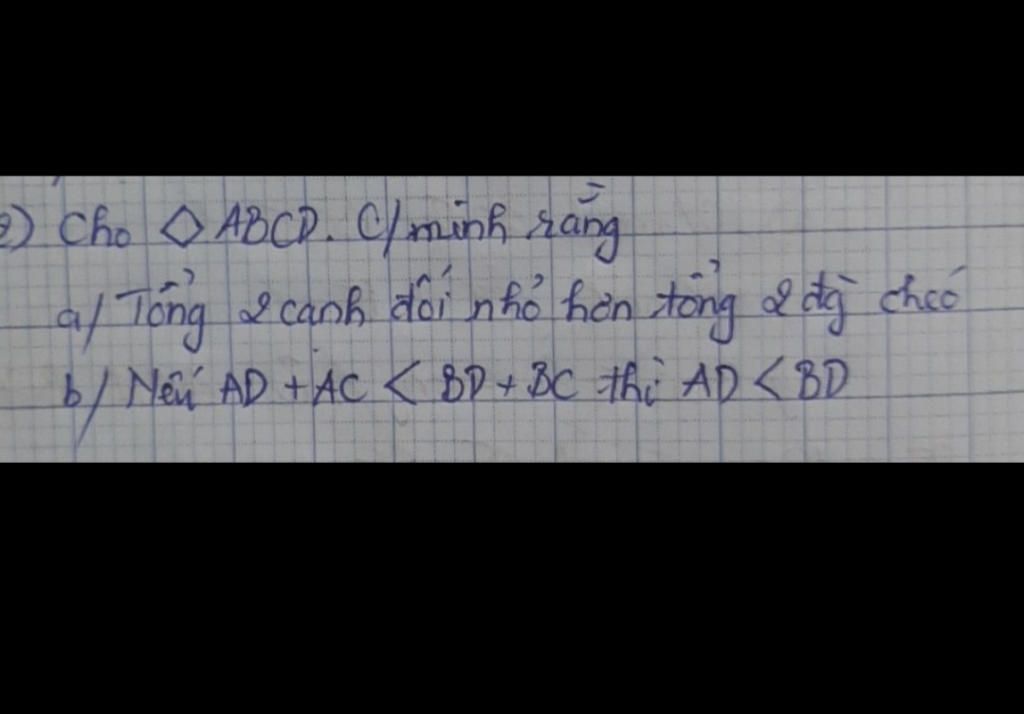 2) Cho ◇ ABCD. C/minh rằng
a/ Tổng 2 cạnh đối nhỏ hơn tổng 2 đg chéo
b/ Nếu AD + AC < BD + BC thì AD < BD